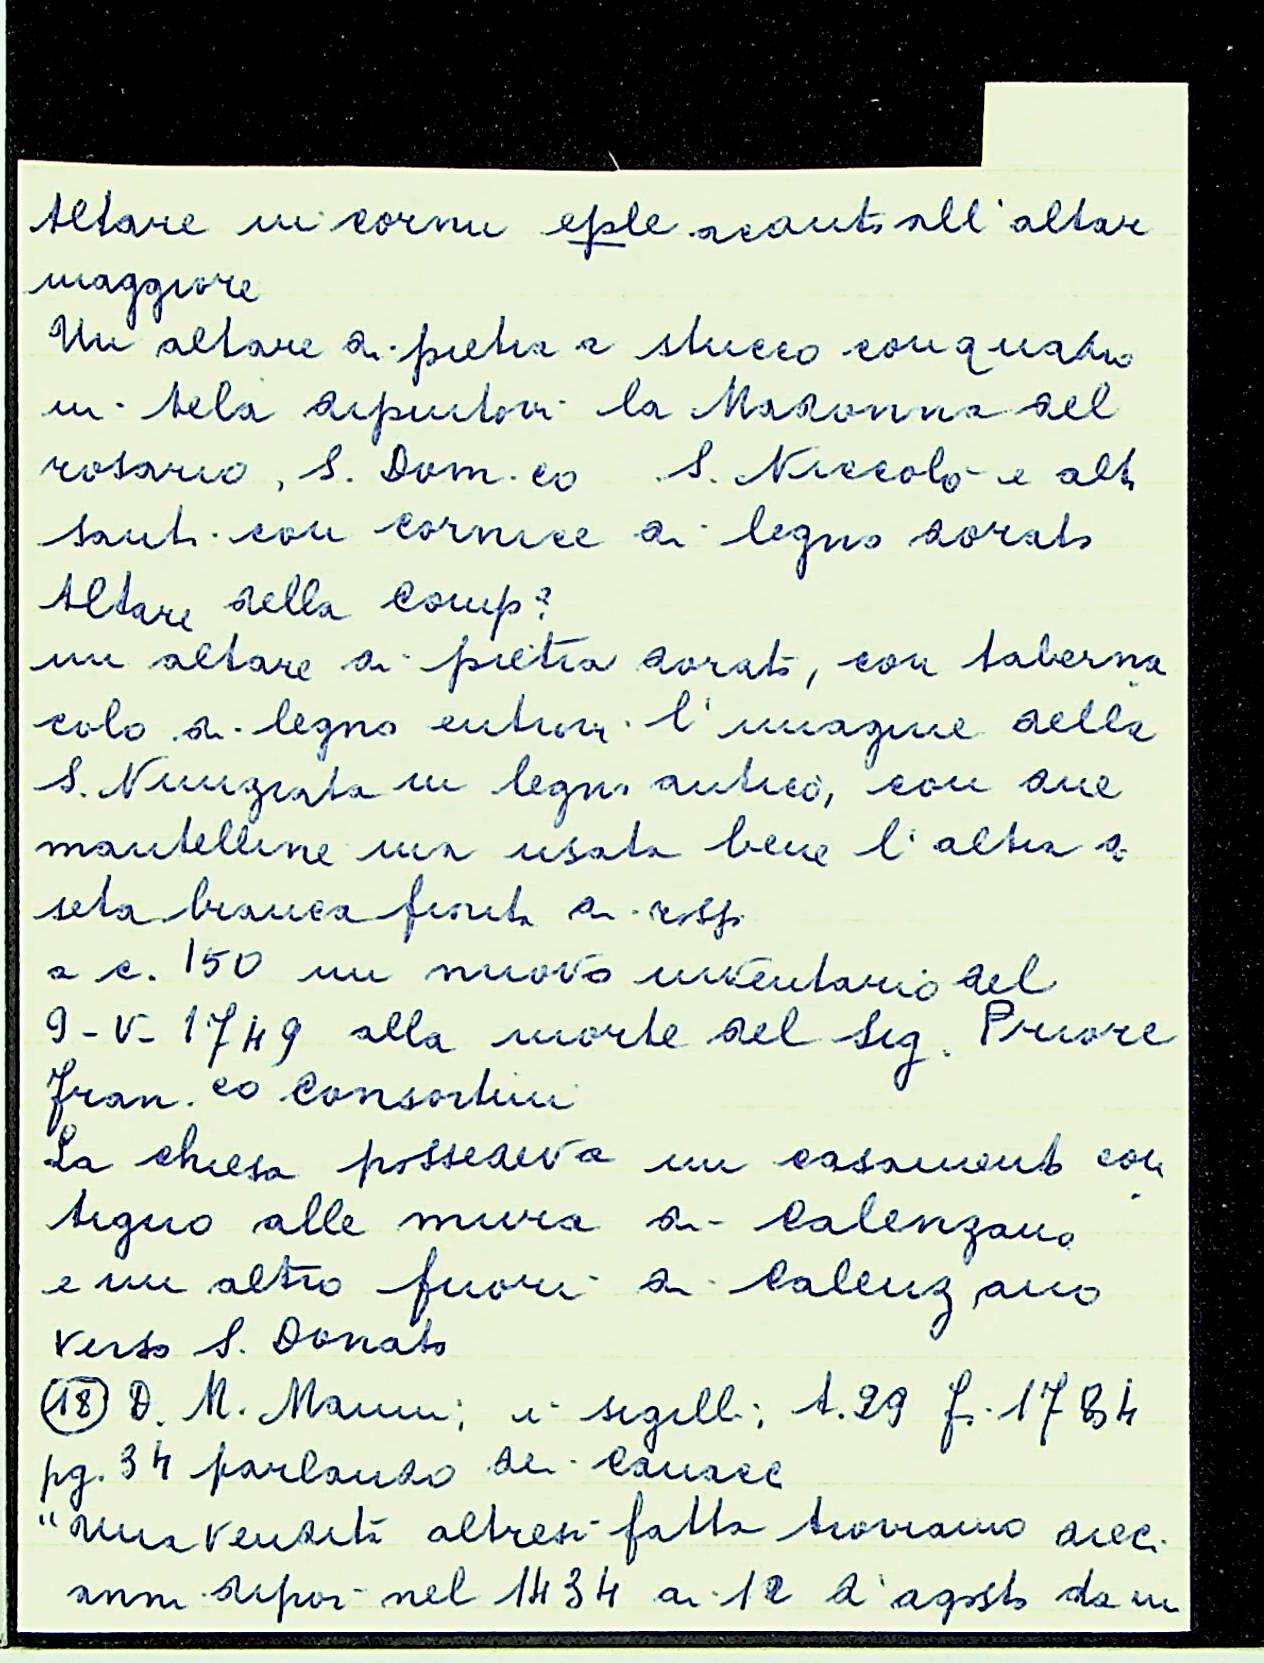 Altare in cornu eple acanto all'altar
maggiore
Un altare di pietra e stucco con quadro
in tela dipintovi la Madonna del
rosario, S. Dom.co S. Niccolò e alti
santi con cornice di legno dorato
Altare della Comp?
un altare di pietra dorato, con taberna
colo di legno entrovi l'imagine della
S. Nunziata in legno antico, con due
mantelline una usata bene l'altra di
seta bianca fiorita di rosso
a c. 150 un nuovo inventario del
9-V-1749 alla morte del Sig. Priore
Fran.co Consortini
La chiesa possedeva un casamento con
tiguo alle mura di Calenzano
e un altro fuori di Calenzano
verso S. Donato
(18) D. M. Manni; i sigilli; t.29 fi. 1784
pg. 34 parlando dei Canacci
"una vendita altresì fatta troviamo dieci
anni dipoi nel 1434 ai 12 d'agosto da un